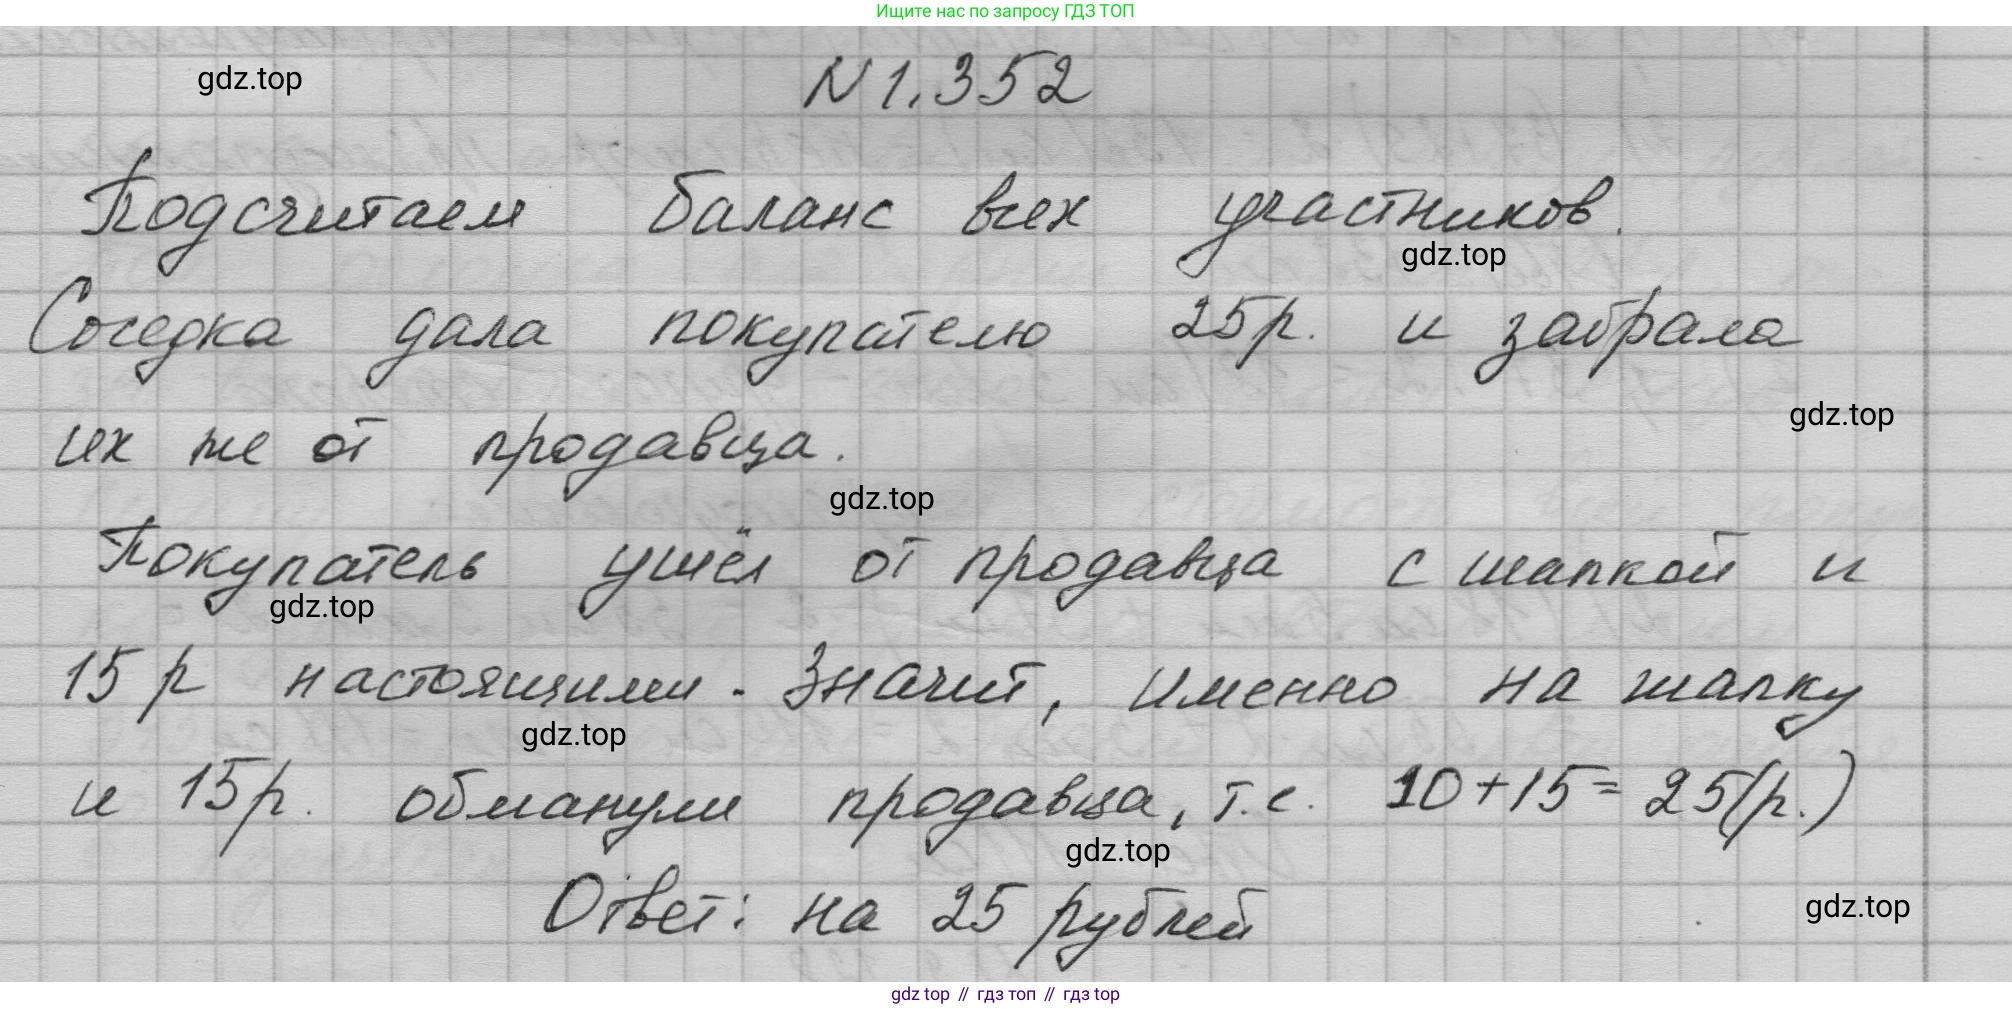 Ищите нас по запросу ГДЗ ТОП
gdz.top
N 1.352
Подсчитаем баланс всех участников.
gdz.top
Соседка дала покупателю 25р. и забрала
gdz.top
их же от продавца.
gdz.top
Покупатель ушёл от продавца с шапкой и
gdz.top
15 р настоящими. Значит, именно на шапку
gdz.top
и 15р. обманули продавца, т.е. 10+15=25(р.)
gdz.top
Ответ: на 25 рублей
gdz.top
gdz top // гдз топ // гдз top